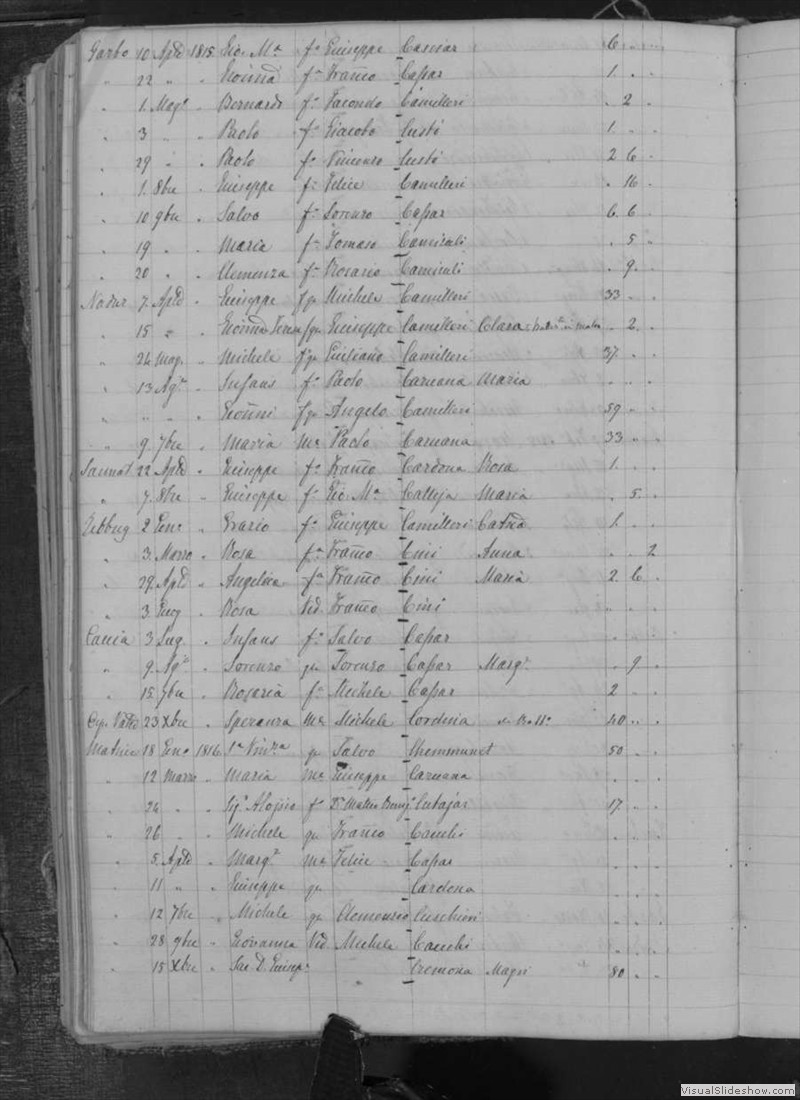 Garbo 10 Aple 1815 Gio. Ma fa Giuseppe Casciar 6 " "
" 22 " " Gioanna fa Franco Caspar 1 " "
" 1 Mago " Bernardo fo Facondo Camilleri " 2 "
" 3 " " Paolo fo Giacobo Custò 1 " "
" 29 " " Paolo fo Vincenzo Custò 2 6 "
" 1 8bre " Giuseppe fo Felice Camilleri " 16
" 10 9bre " Salvo fo Lorenzo Caspar 6 6
" 19 " " Maria fa Tomaso " 5 "
" 20 " " Clemenza fa Rosario " 9 "
Nadur 7 Aple " Giuseppe Michele Camilleri 33 " "
" 15 " " Teresa Giuseppe Camilleri Clara " 2 "
" 24 Mago " Michele Giuliano Camilleri 37 " "
" 13 Ago " Infans fo Paolo Caruana Maria " " "
" " " " Gioanni Angelo Camilleri 59 " "
" 9 7bre " Maria Me Paolo Caruana 33 " "
Sannat 22 Aple " Giuseppe fo Franco Cardona Rosa 1 " "
" 7 8bre " Giuseppe fo Gio Ma Calleja Maria " 5 "
Zebbug 2 Geno " Grazio fo Giuseppe Camilleri Catna 1 " "
" 3 Marzo " Rosa fa Franco Cini Anna " " 2
" 29 Aple " Angelica fa Franco Cini Maria 2 6 "
" 3 " Rosa Vid Franco Cini " " "
Caccia 3 " Infans fo Salvo Caspar " "
" 9 Ago " Lorenzo qm Lorenzo Caspar Marga " 9 "
" 15 7bre " Rosaria fa Michele Caspar 2 " "
23 Xbre " Speranza Me Michele Cordina 40 " "
Matrice 18 Geno 1816 qm Salvo Chemmunet 50 " "
" 12 Marzo " Maria Me Giuseppe Caruana " " "
" 24 " " Sigr Aloisio fo Cutajar 17 " "
" 26 " " Michele qm Franco Cauchi " " "
" 5 Aple " Marga Me Felice Caspar " " "
" 11 " " Giuseppe qm Cardona " " "
" 12 7bre " Michele qm Clemenzio Cuschieri " " "
" 28 9bre " Giovanna Vid Michele Cauchi " " "
" 15 Xbre " Sac D. Giusepe Cremona Magri 80 " "
VisualSlideshow.com